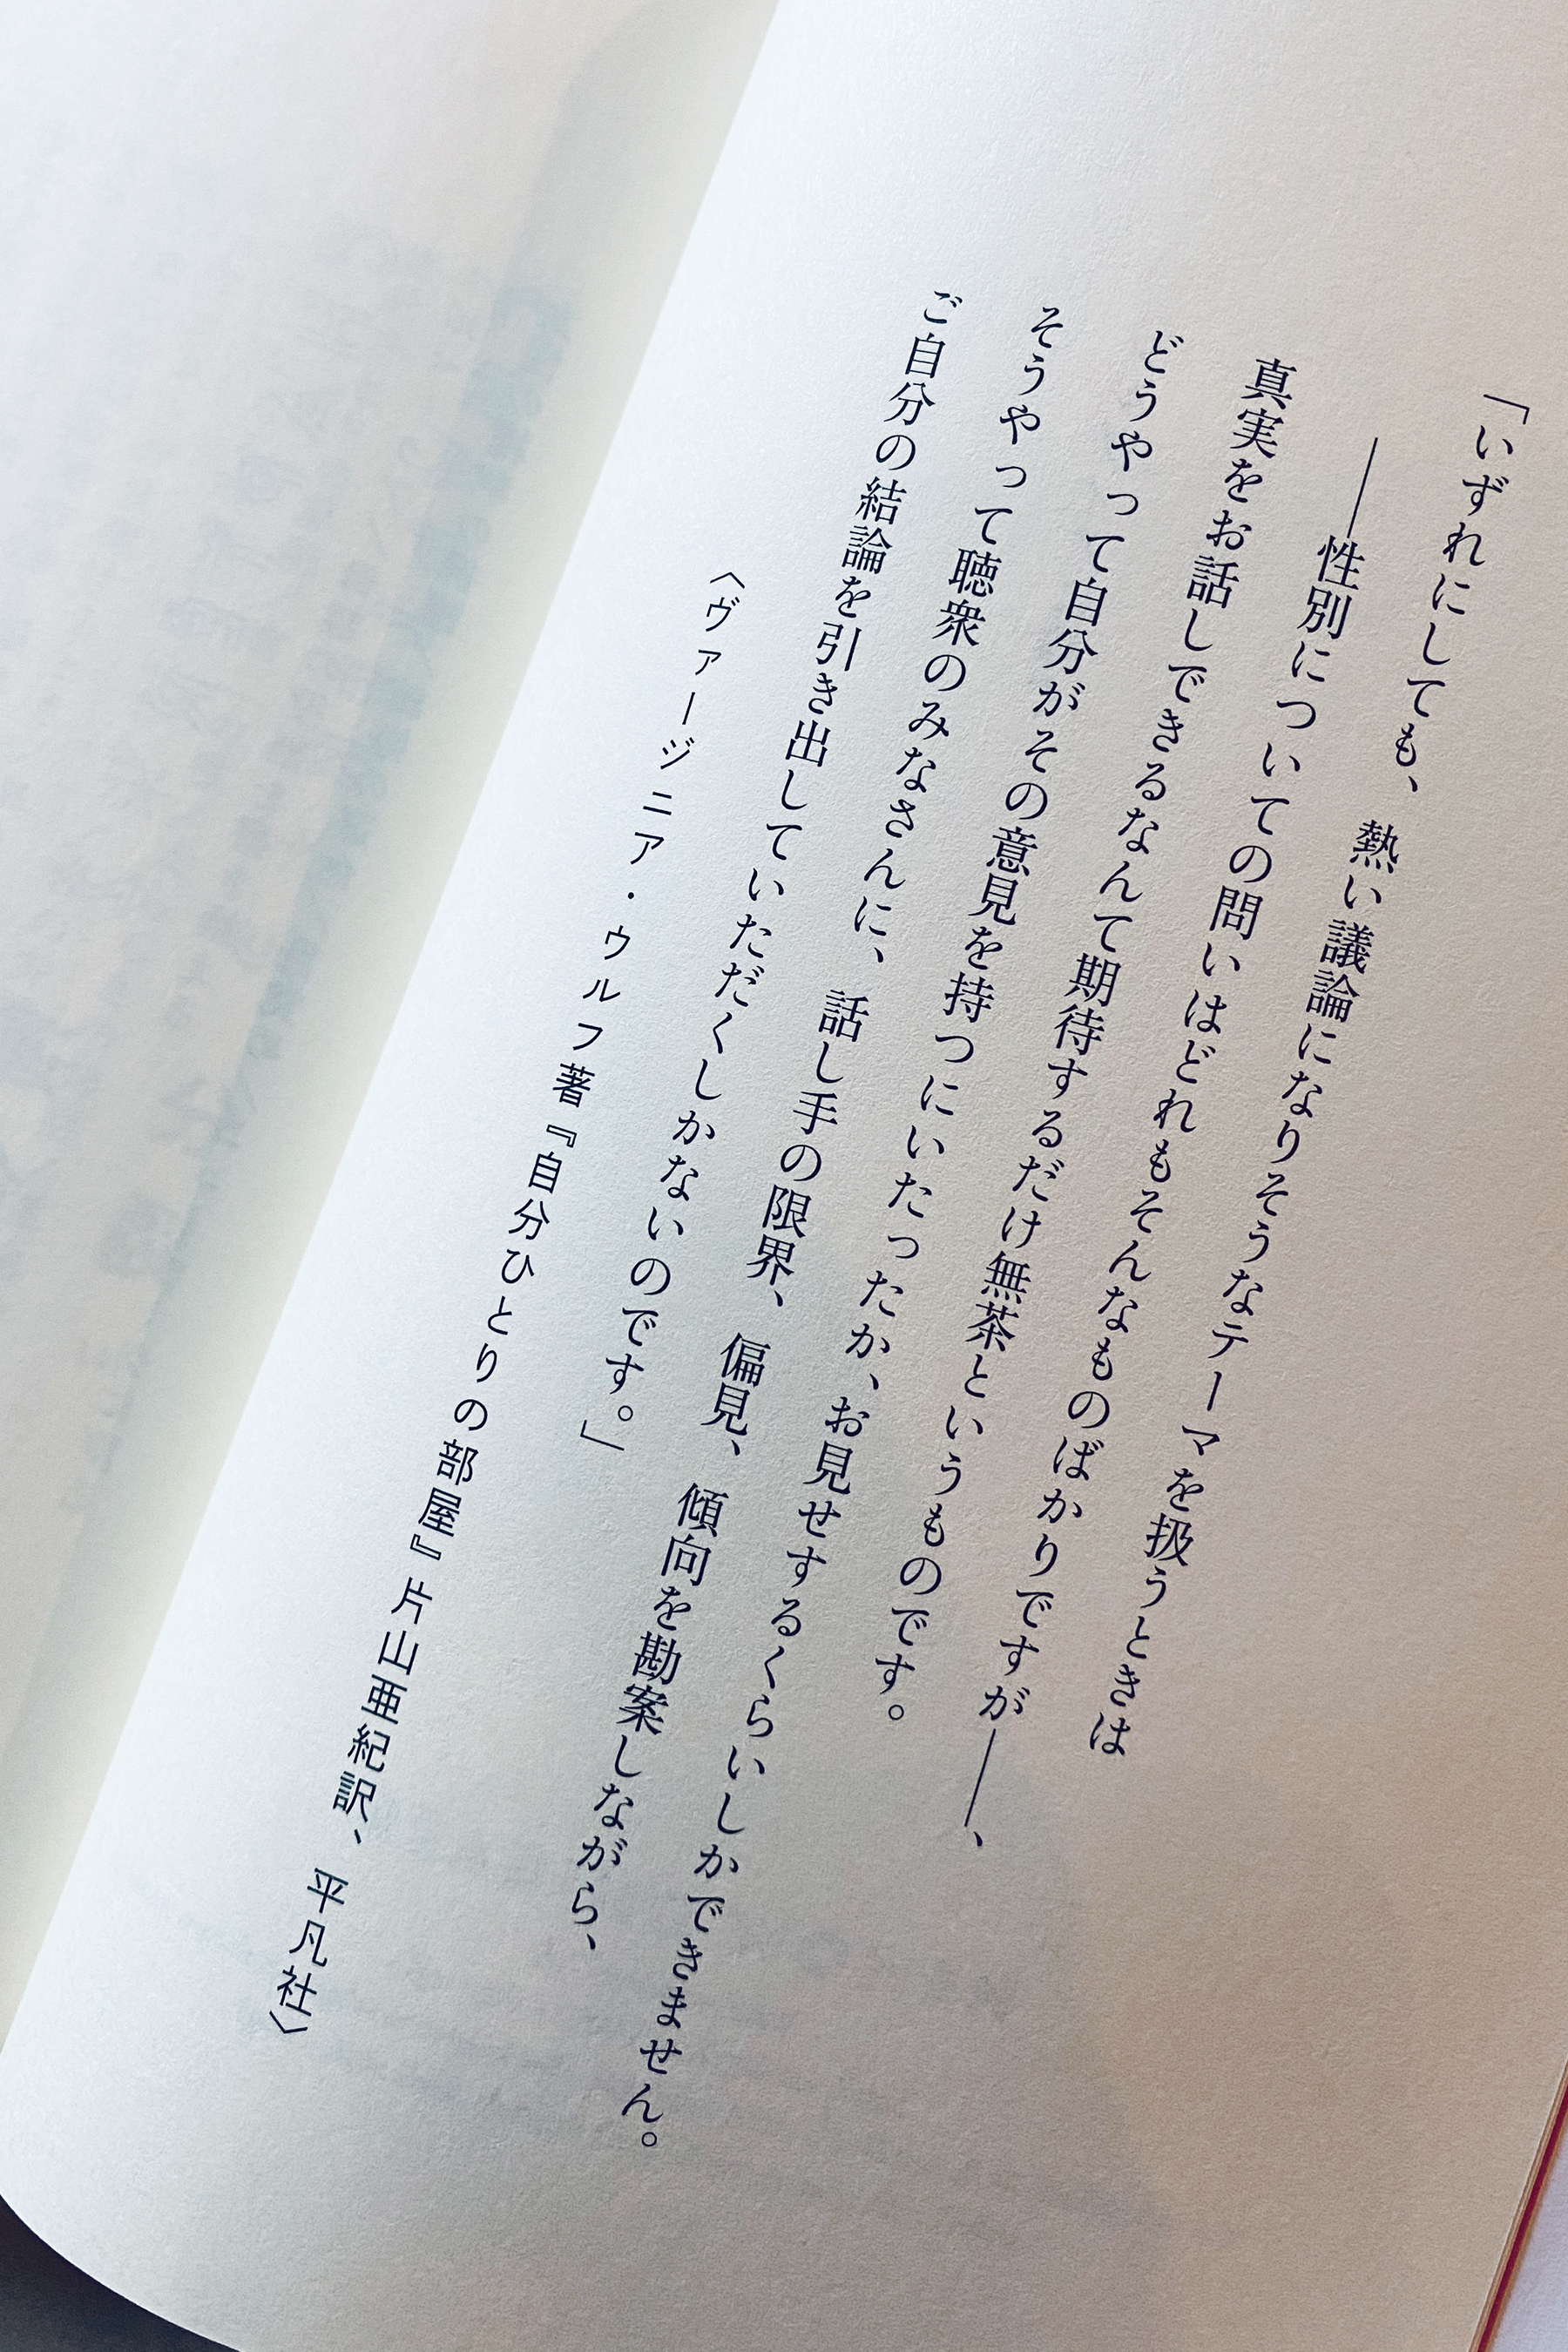 「いずれにしても、熱い議論になりそうなテーマを扱うときは
――性別についての問いはどれもそんなものばかりですが――、
真実をお話しできるなんて期待するだけ無茶というものです。
どうやって自分がその意見を持つにいたったか、お見せするくらいしかできません。
そうやって聴衆のみなさんに、話し手の限界、偏見、傾向を勘案しながら、
ご自分の結論を引き出していただくしかないのです。」
〈ヴァージニア・ウルフ著『自分ひとりの部屋』片山亜紀訳、平凡社〉